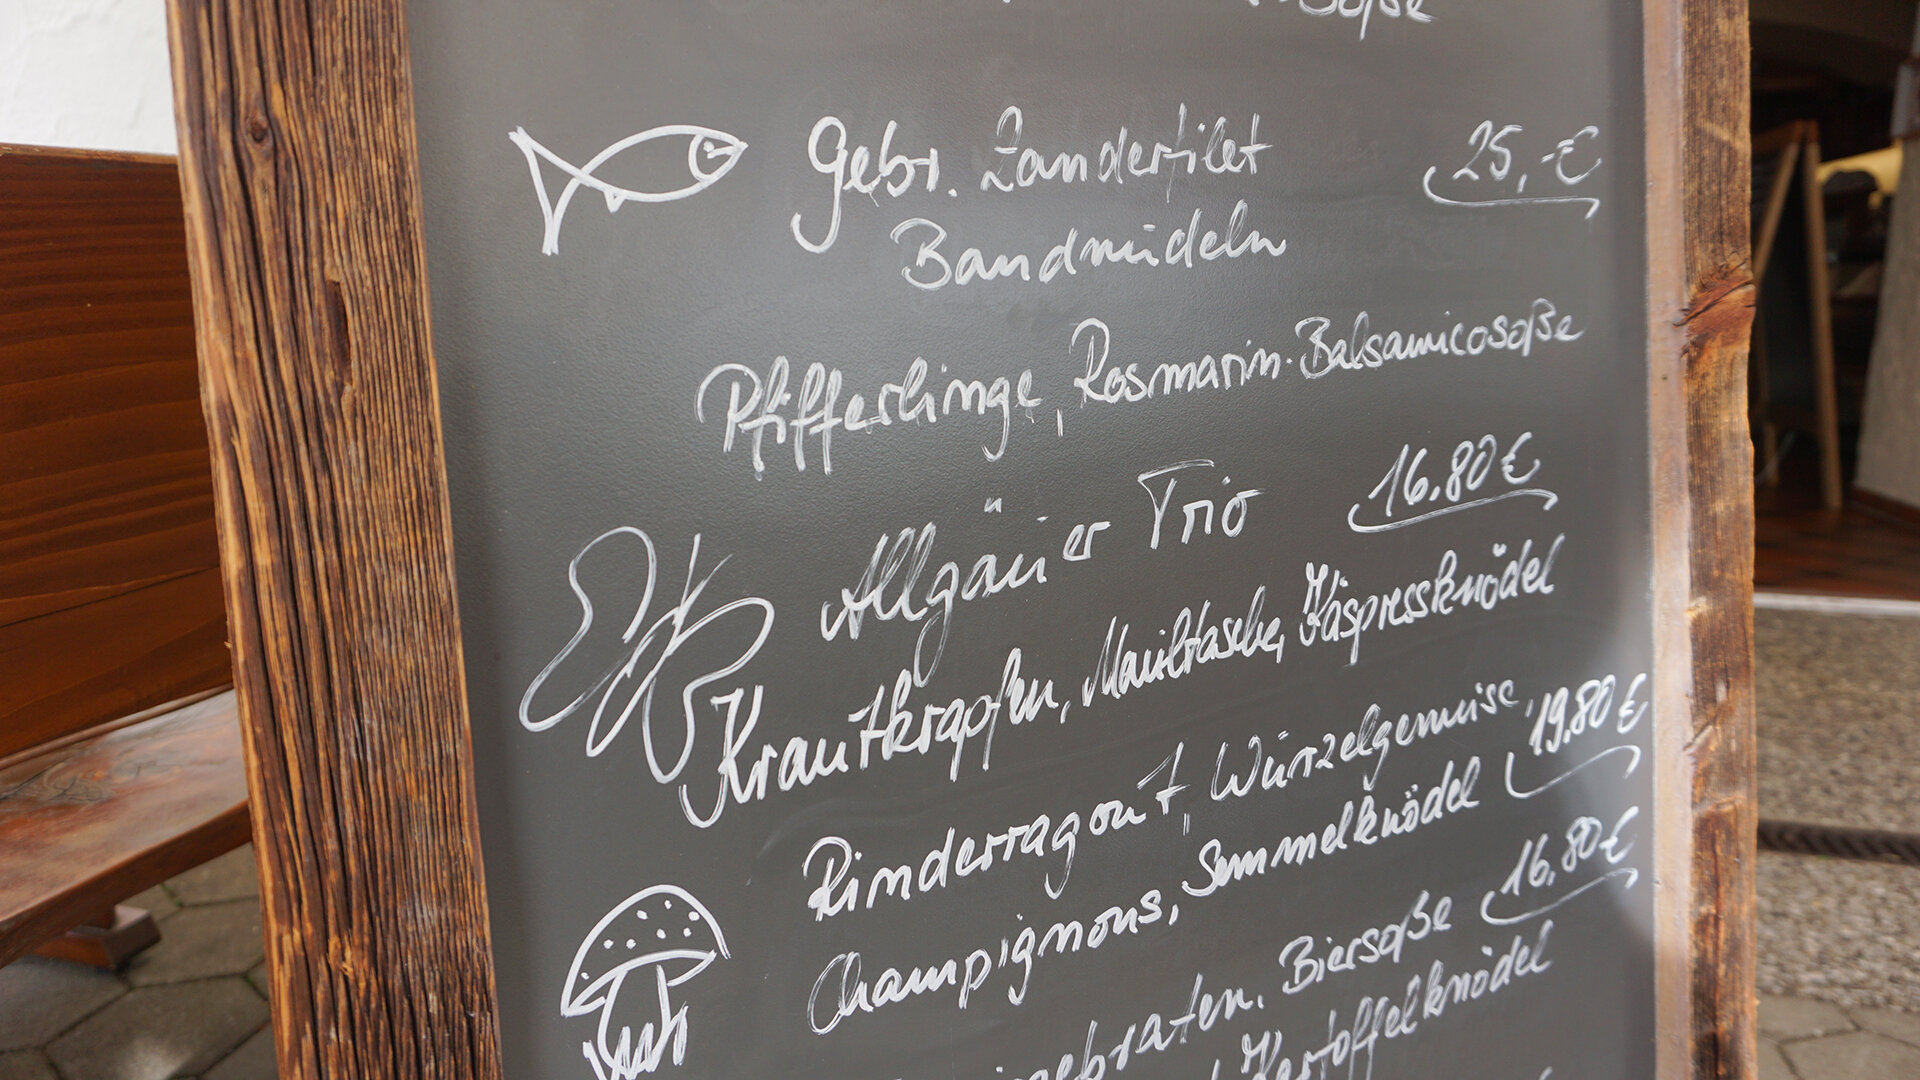 soße
Gebr. Zanderfilet 25,-€
Bandnudeln
Pfifferlinge, Rosmarin-Balsamicosoße
Allgäuer Trio 16.80€
Krautkrapfen, Maultasche, Käspressknödel
Rinderragout, Wurzelgemüse, 19.80€
Champignons, Semmelknödel
Biersoße 16,80€
Kartoffelknödel